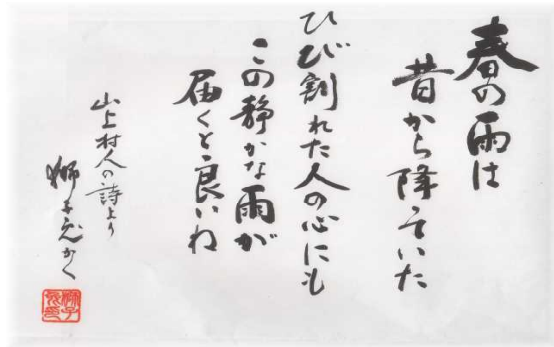 春の雨は
昔から降っていた
ひび割れた人の心にも
この静かな雨が
届くと良いね
山上村人の詩より